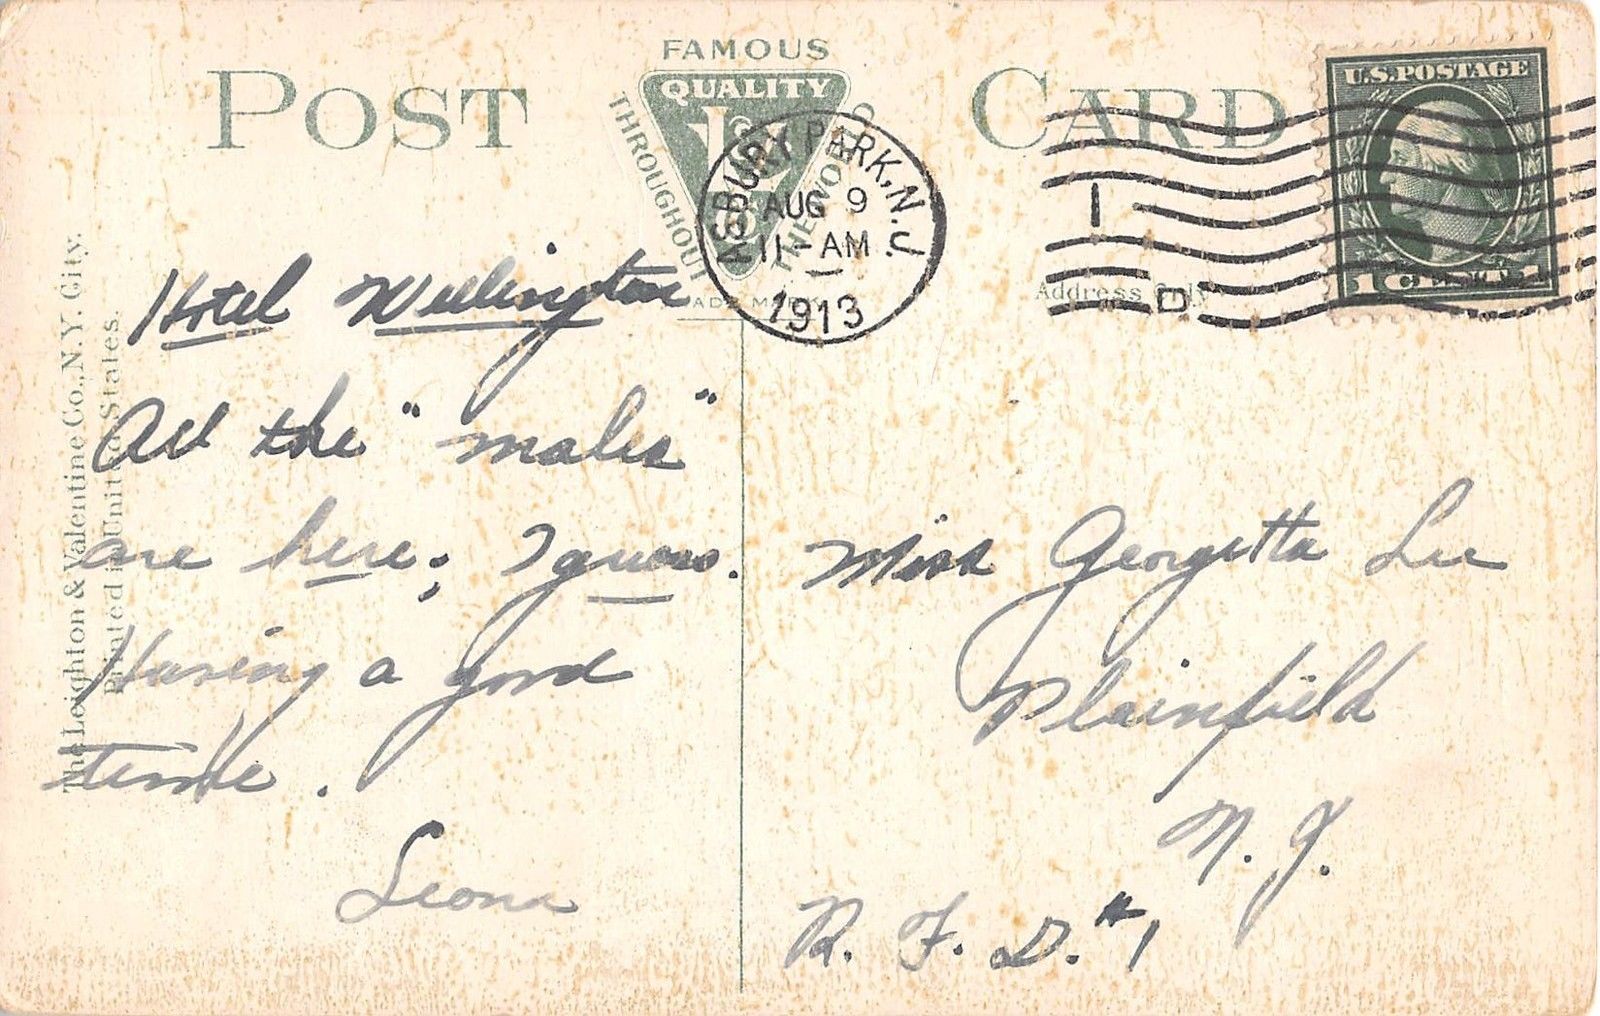 POST CARD
FAMOUS
QUALITY
THROUGHOUT
THE WORLD
TRADE MARK
ASBURY PARK, N.J.
AUG 9
11-AM
1913
1
D
U.S. POSTAGE
1 CENT 1
Address Only
The Leighton & Valentine Co., N.Y. City.
Printed in United States.
Hotel Wellington
All the "males"
are here; I guess.
Having a good
time.
Leona
Miss Georgetta Lee
Plainfield
N. J.
R. F. D. #1